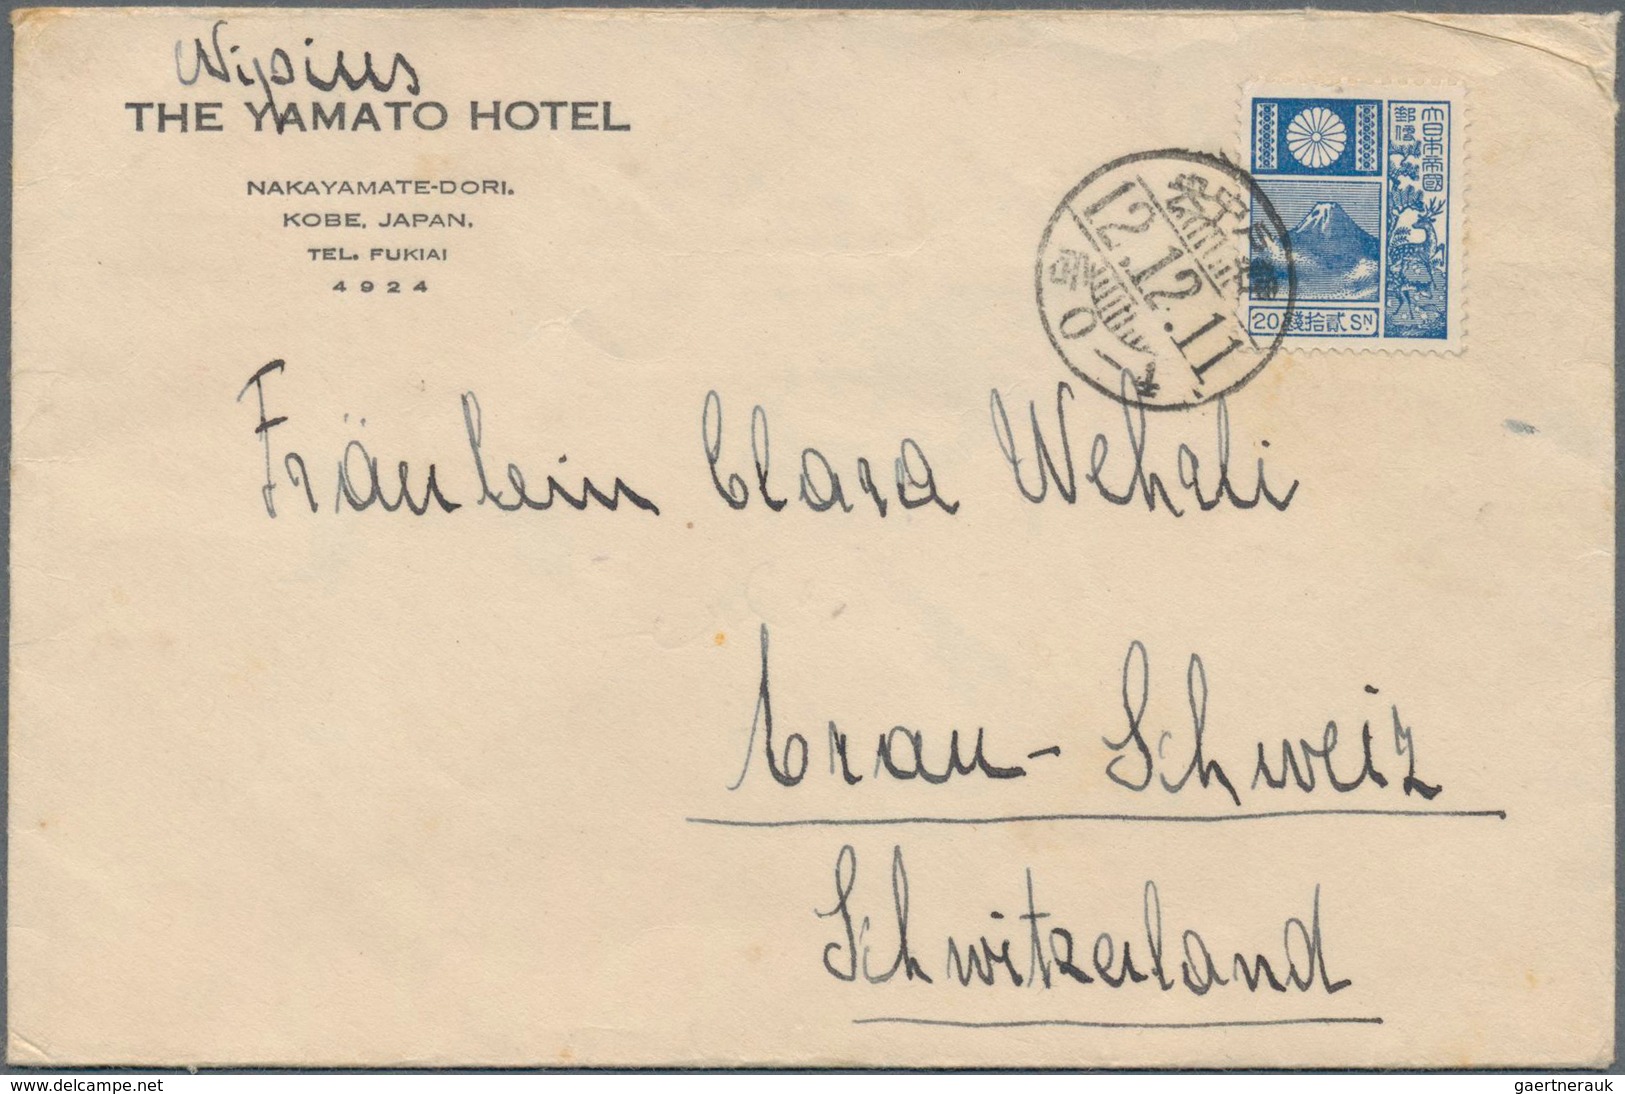 Nipius
THE YAMATO HOTEL
NAKAYAMATE-DORI.
KOBE, JAPAN.
TEL. FUKIAI
4924
大日本帝國
郵便
20 錢拾貳 SN
12.12.11
Fräulein Clara Wehrli
Schweiz
Schwitzerland
gaertnerauk